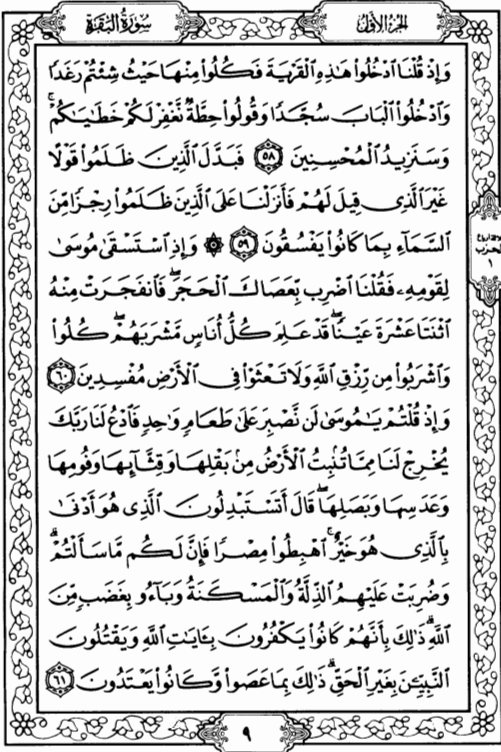 الجزء الأول
سورة البقرة
وَإِذْ قُلْنَا ٱدْخُلُوا۟ هَـٰذِهِ ٱلْقَرْيَةَ فَكُلُوا۟ مِنْهَا حَيْثُ شِئْتُمْ رَغَدًا
وَٱدْخُلُوا۟ ٱلْبَابَ سُجَّدًا وَقُولُوا۟ حِطَّةٌ نَّغْفِرْ لَكُمْ خَطَـٰيَـٰكُمْ ۚ
وَسَنَزِيدُ ٱلْمُحْسِنِينَ ٥٨ فَبَدَّلَ ٱلَّذِينَ ظَلَمُوا۟ قَوْلًا
غَيْرَ ٱلَّذِى قِيلَ لَهُمْ فَأَنزَلْنَا عَلَى ٱلَّذِينَ ظَلَمُوا۟ رِجْزًا مِّنَ
ٱلسَّمَآءِ بِمَا كَانُوا۟ يَفْسُقُونَ ٥٩ ۞ وَإِذِ ٱسْتَسْقَىٰ مُوسَىٰ
لِقَوْمِهِۦ فَقُلْنَا ٱضْرِب بِّعَصَاكَ ٱلْحَجَرَ ۖ فَٱنفَجَرَتْ مِنْهُ
ٱثْنَتَا عَشْرَةَ عَيْنًا ۖ قَدْ عَلِمَ كُلُّ أُنَاسٍ مَّشْرَبَهُمْ ۖ كُلُوا۟
وَٱشْرَبُوا۟ مِن رِّزْقِ ٱللَّهِ وَلَا تَعْثَوْا۟ فِى ٱلْأَرْضِ مُفْسِدِينَ ٦٠
وَإِذْ قُلْتُمْ يَـٰمُوسَىٰ لَن نَّصْبِرَ عَلَىٰ طَعَامٍ وَٰحِدٍ فَٱدْعُ لَنَا رَبَّكَ
يُخْرِجْ لَنَا مِمَّا تُنۢبِتُ ٱلْأَرْضُ مِنۢ بَقْلِهَا وَقِثَّآئِهَا وَفُومِهَا
وَعَدَسِهَا وَبَصَلِهَا ۖ قَالَ أَتَسْتَبْدِلُونَ ٱلَّذِى هُوَ أَدْنَىٰ
بِٱلَّذِى هُوَ خَيْرٌ ۚ ٱهْبِطُوا۟ مِصْرًا فَإِنَّ لَكُم مَّا سَأَلْتُمْ ۗ
وَضُرِبَتْ عَلَيْهِمُ ٱلذِّلَّةُ وَٱلْمَسْكَنَةُ وَبَآءُو بِغَضَبٍ مِّنَ
ٱللَّهِ ۗ ذَٰلِكَ بِأَنَّهُمْ كَانُوا۟ يَكْفُرُونَ بِـَٔايَـٰتِ ٱللَّهِ وَيَقْتُلُونَ
ٱلنَّبِيِّـۧنَ بِغَيْرِ ٱلْحَقِّ ۗ ذَٰلِكَ بِمَا عَصَوا۟ وَّكَانُوا۟ يَعْتَدُونَ ٦١
الحزب
١
٩